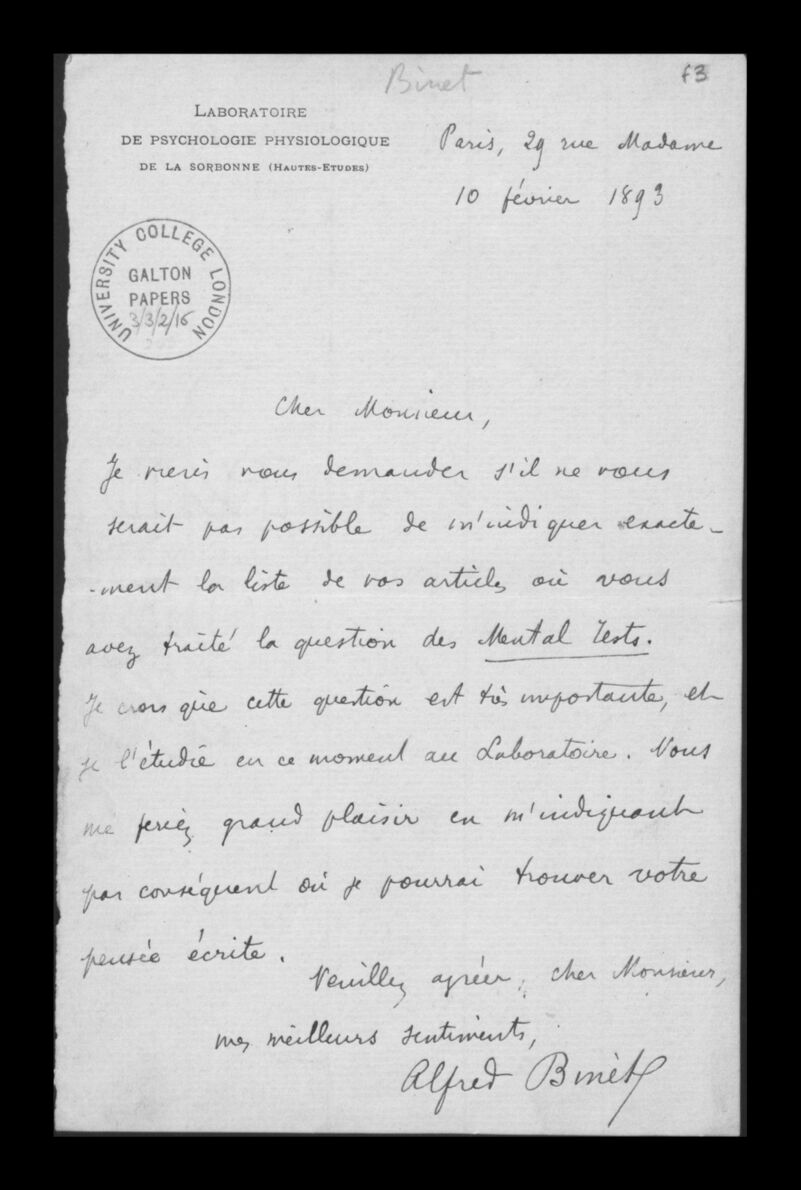 Binet
f3
LABORATOIRE
DE PSYCHOLOGIE PHYSIOLOGIQUE
DE LA SORBONNE (HAUTES-ETUDES)
Paris, 29 rue Madame
10 février 1893
UNIVERSITY COLLEGE LONDON
GALTON
PAPERS
3/3/2/16
Cher Monsieur,
Je viens vous demander s'il ne vous
serait pas possible de m'indiquer exacte-
-ment la liste de vos articles où vous
avez traité la question des Mental Tests.
Je crois que cette question est très importante, et
je l'étudie en ce moment au Laboratoire. Vous
me feriez grand plaisir en m'indiquant
par conséquent où je pourrai trouver votre
pensée écrite.
Veuillez agréer, cher Monsieur,
mes meilleurs sentiments,
Alfred Binet